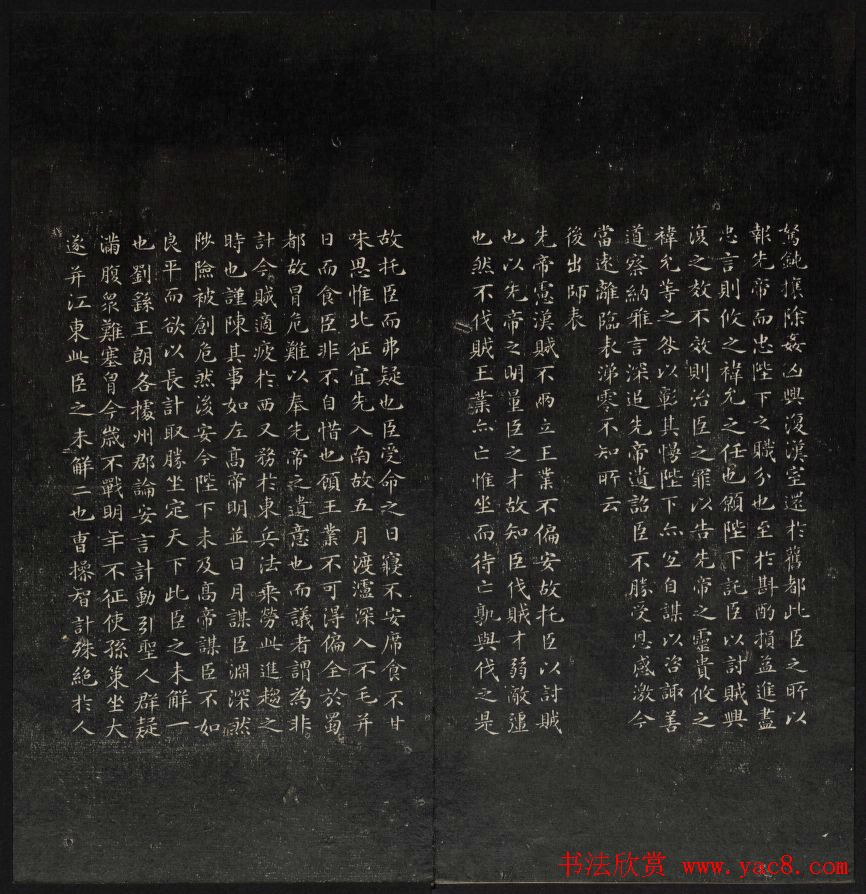 駑鈍攘除姦凶興復漢室還於舊都此臣之所以
報先帝而忠陛下之職分也至於斟酌損益進盡
忠言則攸之禕允之任也願陛下託臣以討賊興
復之效不效則治臣之罪以告先帝之靈責攸之
禕允等之咎以彰其慢陛下亦宜自謀以咨諏善
道察納雅言深追先帝遺詔臣不勝受恩感激今
當遠離臨表涕零不知所云
後出師表
先帝慮漢賊不兩立王業不偏安故托臣以討賊
也以先帝之明量臣之才故知臣伐賊才弱敵彊
也然不伐賊王業亦亡惟坐而待亡孰與伐之是
故托臣而弗疑也臣受命之日寢不安席食不甘
味思惟北征宜先入南故五月渡瀘深入不毛并
日而食臣非不自惜也顧王業不可得偏全於蜀
都故冒危難以奉先帝之遺意也而議者謂為非
計今賊適疲於西又務於東兵法乘勞此進趨之
時也謹陳其事如左高帝明並日月謀臣淵深然
陟險被創危然後安今陛下未及高帝謀臣不如
良平而欲以長計取勝坐定天下此臣之未解一
也劉繇王朗各據州郡論安言計動引聖人群疑
滿腹眾難塞胷今歲不戰明年不征使孫策坐大
遂并江東此臣之未解二也曹操智計殊絕於人
书法欣赏 www.yac8.com